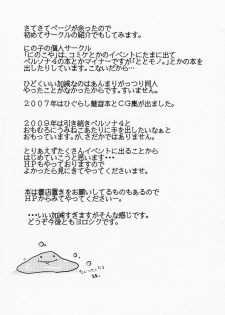 さてさてページが余ったので
初めてサークルの紹介でもしてみます。
にの子の個人サークル
「にのこや」は、コミケとかのイベントにたまに出て
ペルソナ4の本とかマイナーですが「ととモノ。」とかの本を
出したりしています。こりないだから…
ひどくいい加減なのはあんまりがっつり同人
やったことがなかったからです。すいません。
2007年はひぐらし魅音本とCG集が出ました。
2009年は引き続きペルソナ4と
おもむろにうみねこあたりに手を出したいなぁと
おもっていますが、さだかではありません。
とりあえずたくさんイベントに出ることから
はじめていこうと思います・・・
HPもやっておりますので
よかったら見にきてやってくださいませ。
本は書店置きをお願いしてるものもあるので
HPからみてやってくださいー。
・・・いい加減すぎますがそんな感じです。
どうぞ今後ともヨロシクです。